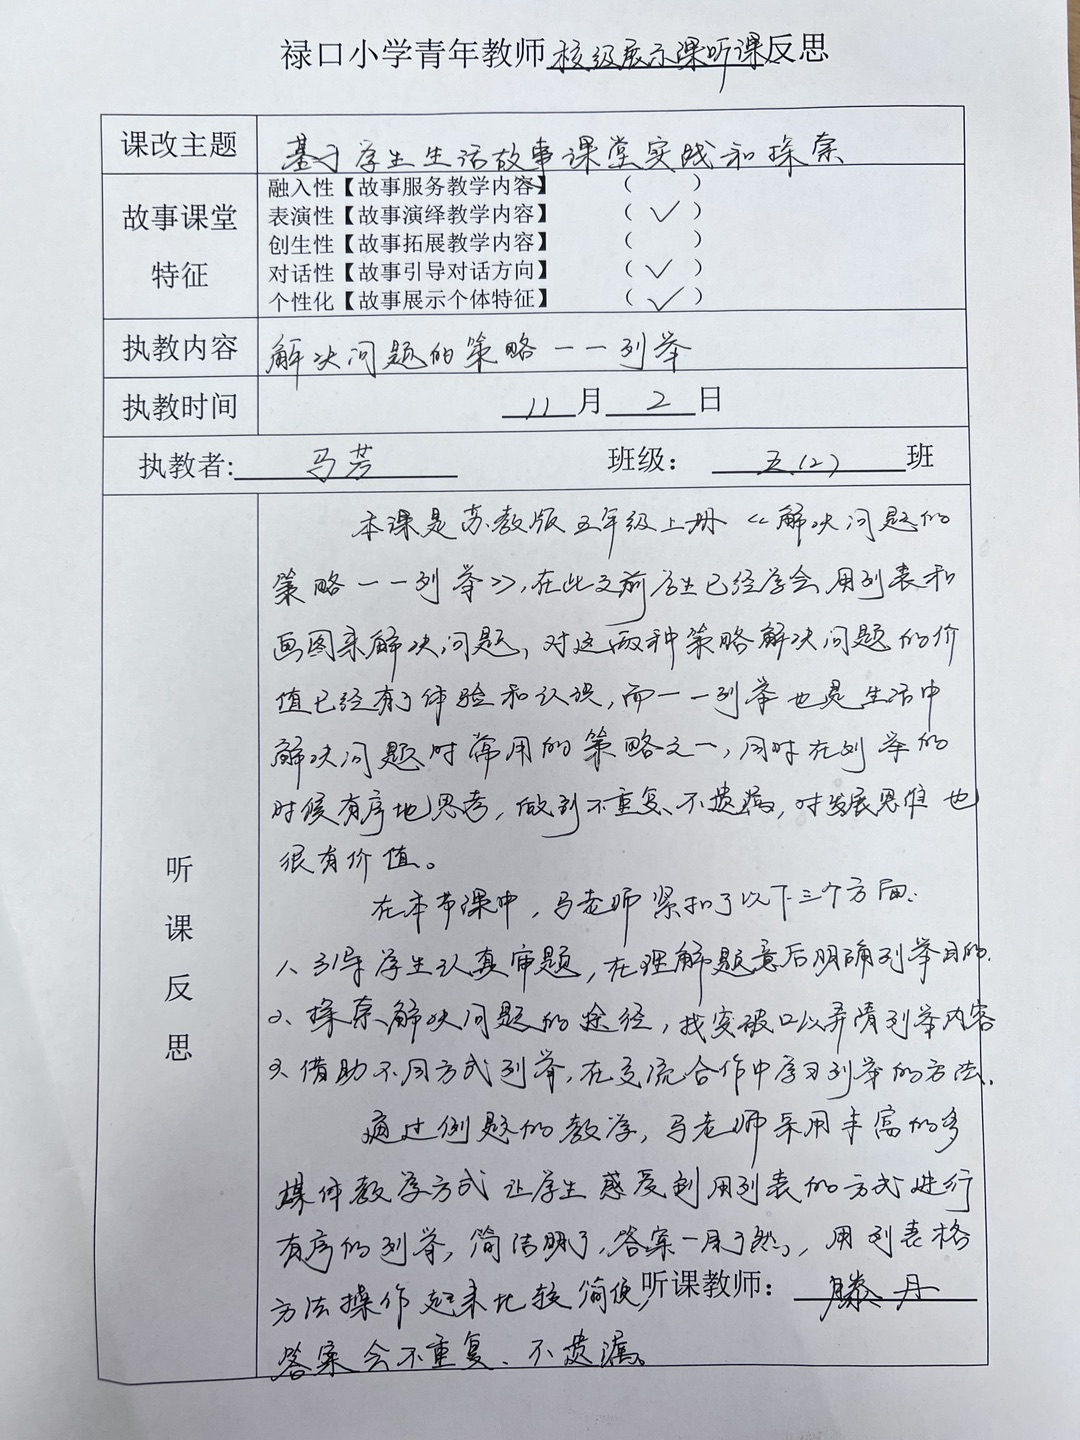 禄口小学青年教师校级展示课听课反思
课改主题 基于学生生活故事课堂实践和探索
故事课堂特征
融入性【故事服务教学内容】 （ ）
表演性【故事演绎教学内容】 （ ✓ ）
创生性【故事拓展教学内容】 （ ）
对话性【故事引导对话方向】 （ ✓ ）
个性化【故事展示个体特征】 （ ✓ ）
执教内容 解决问题的策略一一列举
执教时间 11月2日
执教者: 马芳 班级： 五(2)班
听课反思
本课是苏教版五年级上册《解决问题的
策略一一列举》,在此之前学生已经学会用列表和
画图来解决问题，对这两种策略解决问题的价
值已经有了体验和认识,而一一列举也是生活中
解决问题时常用的策略之一,同时在列举的
时候有序地思考，做到不重复、不遗漏,对发展思维也
很有价值。
在本节课中,马老师紧扣了以下三个方面:
1、引导学生认真审题,在理解题意后明确列举目的.
2、探索解决问题的途径,找突破口以弄清列举内容
3、借助不同方式列举,在交流合作中学习列举的方法.
通过例题的教学,马老师采用丰富的多
媒体教学方式让学生感受到用列表的方式进行
有序的列举,简洁明了,答案一目了然,用列表格
方法操作起来比较简便, 听课教师： 滕丹
答案会不重复、不遗漏。